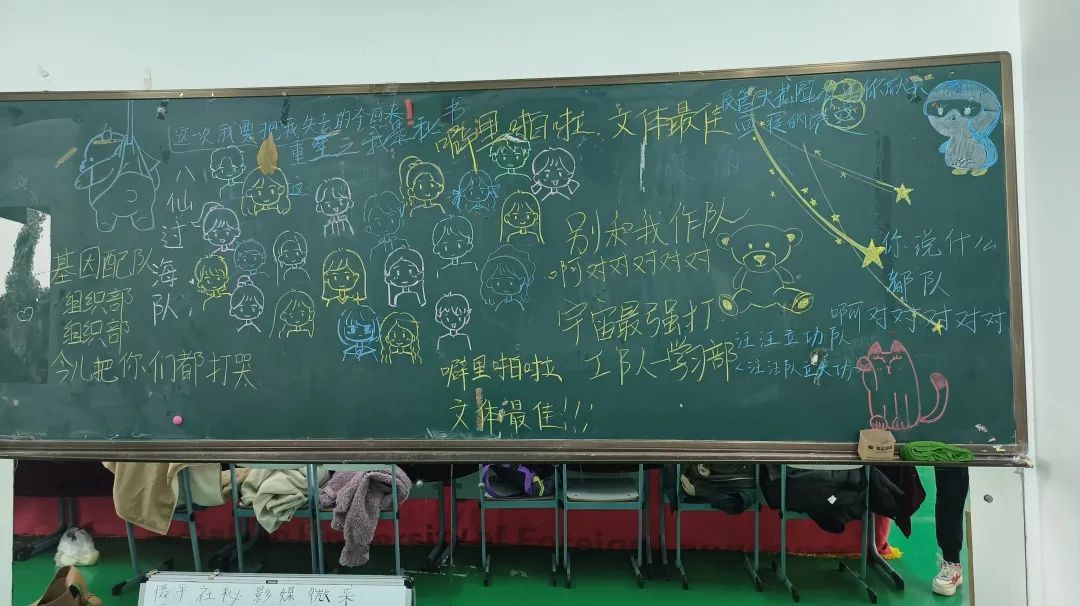 这一次我要把我失去的全回来!
重生之我第秘书
癖里啪啦,文体最佳
八仙过海队
基因配队
组织部
组织部
今儿把你们都打哭
别和我作队
啊对对对对对
宇宙最强打
工队—学习部
汪汪立功队
汪汪队立大功
癖里啪啦
文体最佳!!!
你说什么
都队
啊对对对对对
University of Foreign
摄平在秘影媒微采